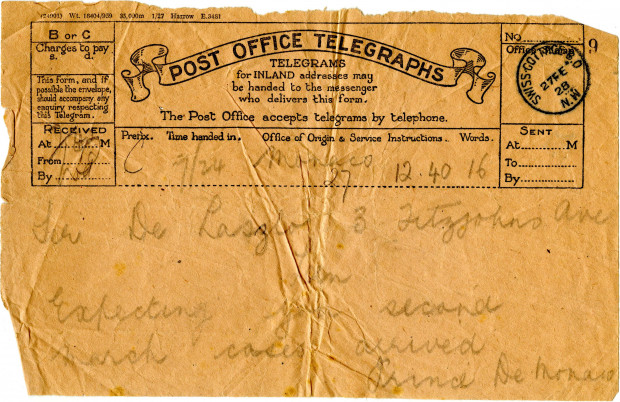 (24901) Wt. 18404/959 35,000m 1/27 Harrow E.3481
B or C
Charges to pay
s. d.
This form, and if
possible the envelope,
should accompany any
enquiry respecting
this Telegram.
RECEIVED
At M
From
By
POST OFFICE TELEGRAPHS
TELEGRAMS
for INLAND addresses may
be handed to the messenger
who delivers this form.
The Post Office accepts telegrams by telephone.
Prefix. Time handed in. Office of Origin & Service Instructions. Words.
Monaco
27 12.40 16
No
Office Stamp
9
SWISS-COTTAGE S.O
27 FE
28
N.W
SENT
At M
To
By
De Laszlo 3 Fitzjohns Ave
Ldn
Expecting you second
march cases arrived
Prince De Monaco